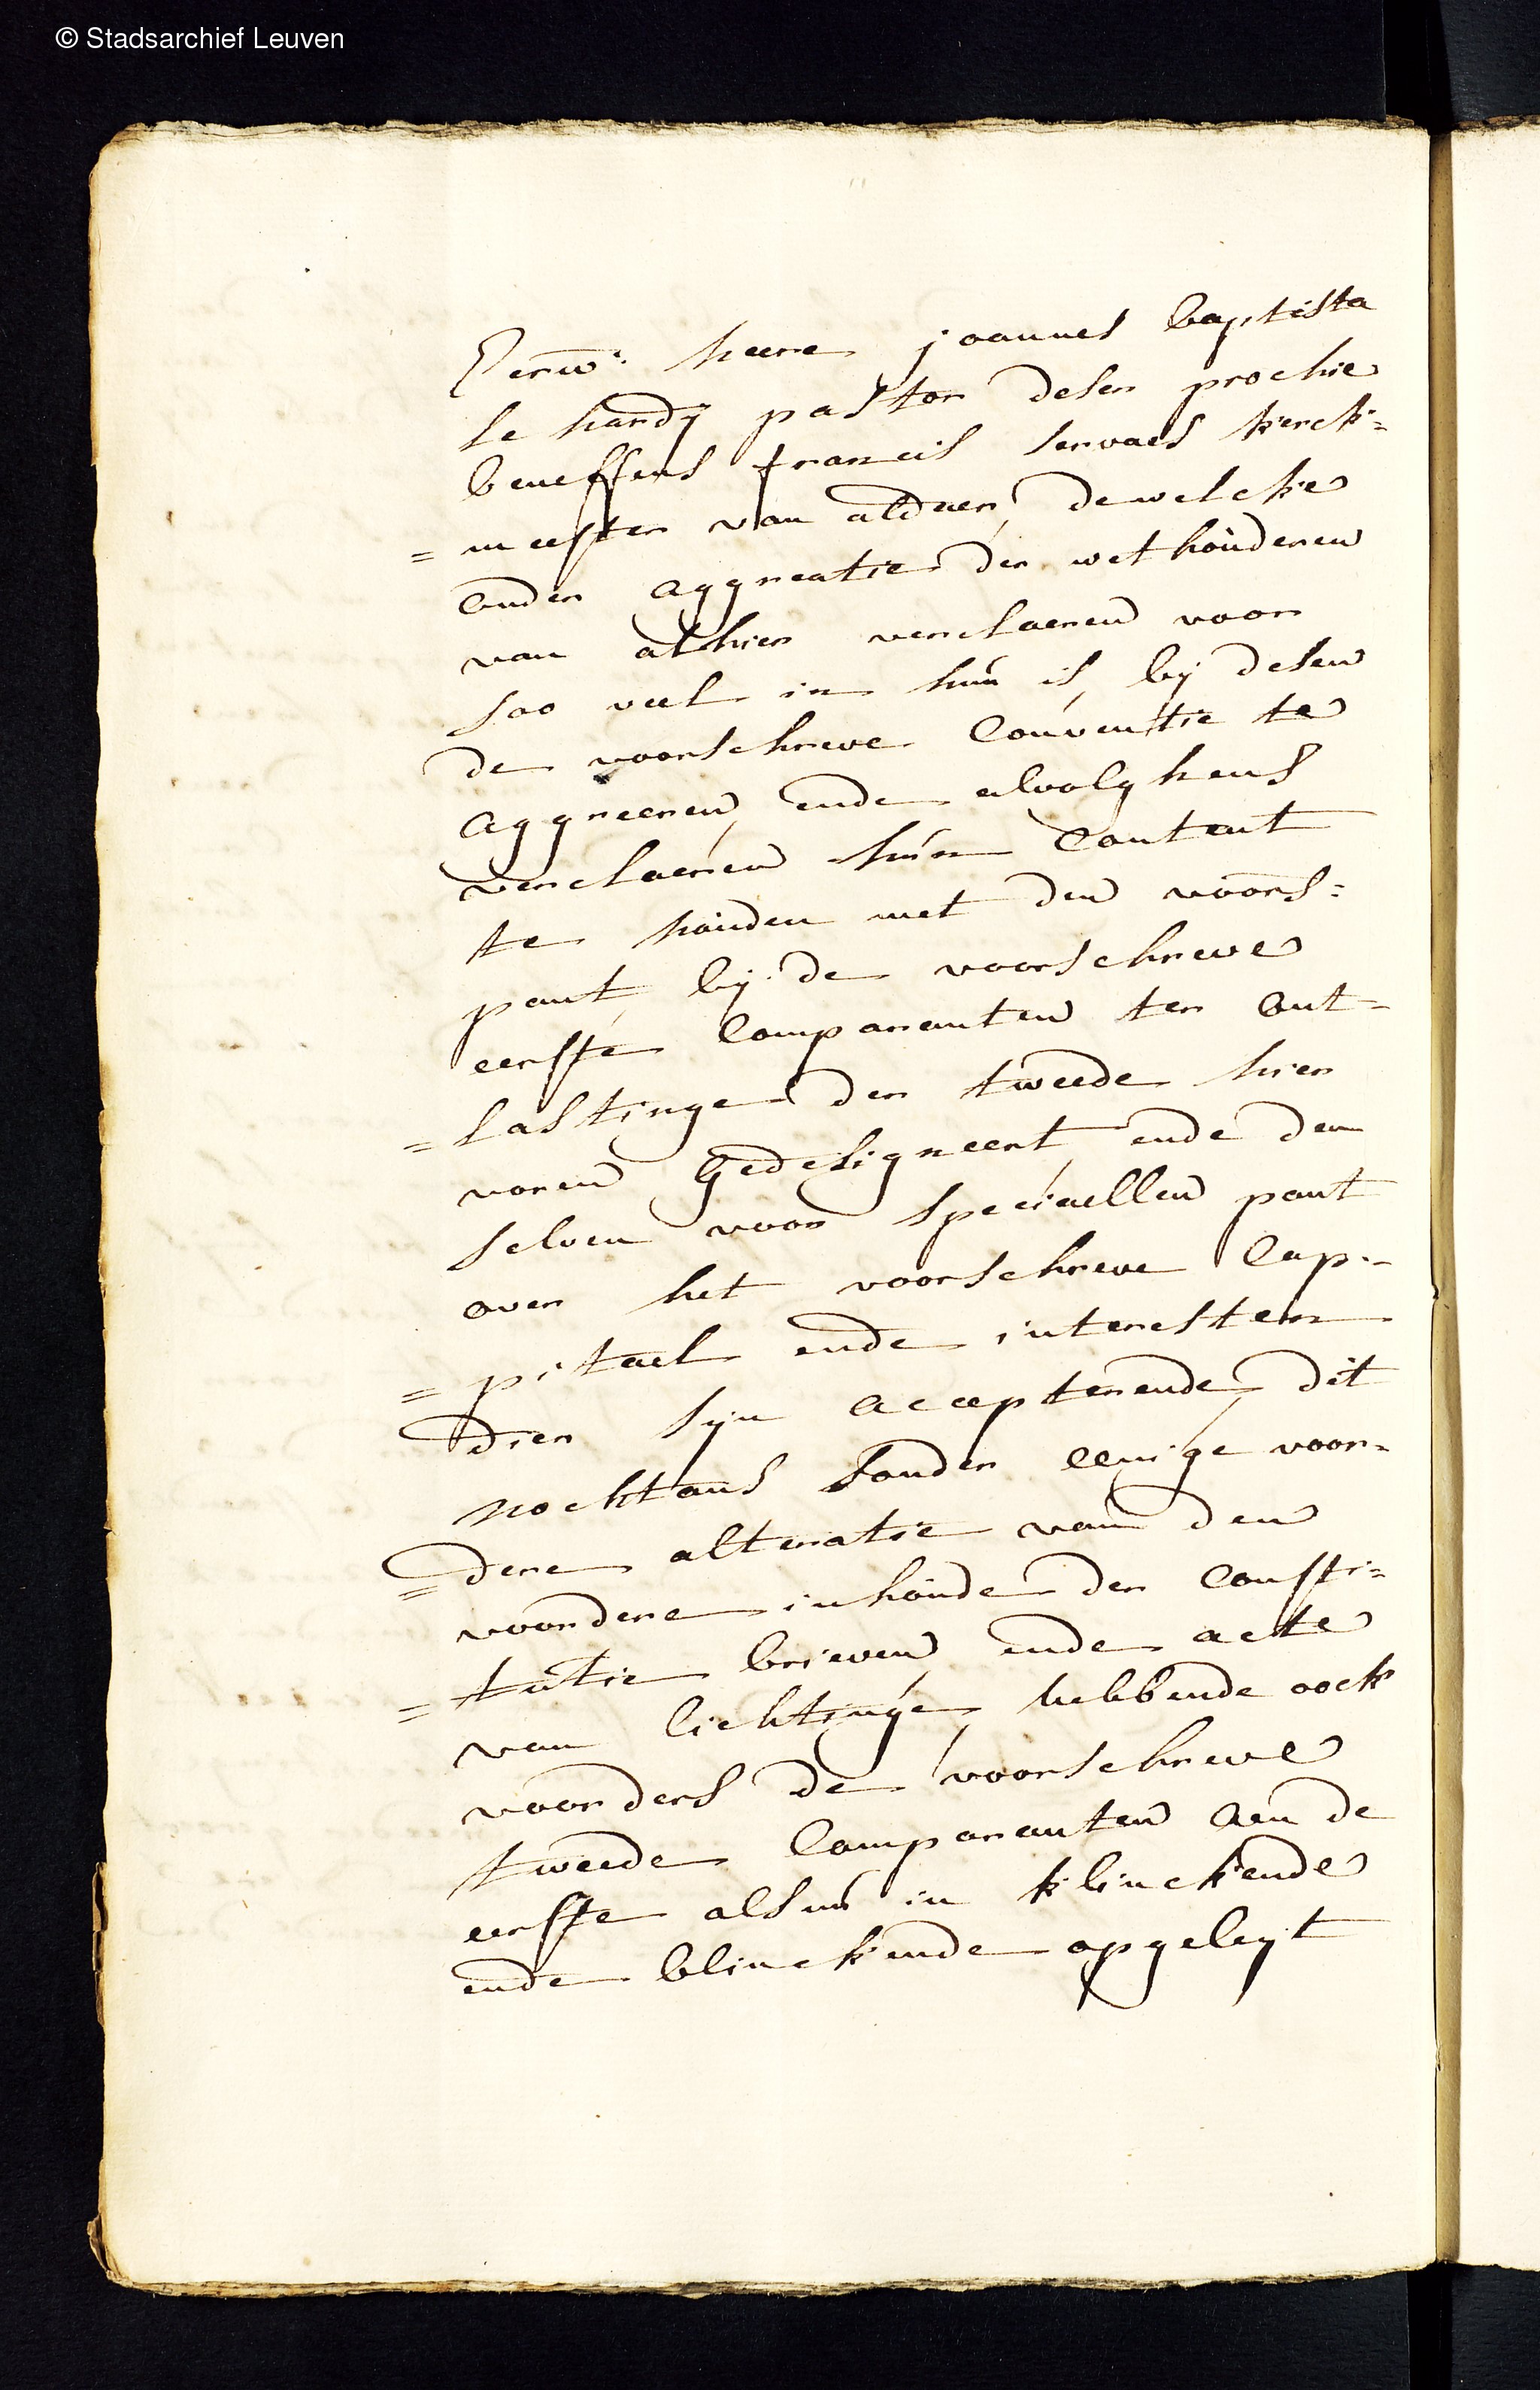 © Stadsarchief Leuven
Eerw: heere joannes baptista
le hardÿ pastor deser prochie
beneffens francis servaes kerck=
=meester van aldaer, dewelcke
onder aggreatie der wethouderen
van alhier verclaeren voor
soo veel in hun is, bij desen
de voorschreve Conventie te
aggreeren, ende alvolghens
verclaeren hun Content
te houden met den voors:
pant, bij de voorschreve
eerste Comparanten ter ont=
=lastinge der tweede hier
voren gedesigneert, ende den
selven voor speciaellen pant
over het voorschreve Cap=
=pitael ende interesten
dier sijn accepterende, dit
nochtans sonder eenige voor=
=dere alteratie van den
voordere inhoude der Consti=
=tutie brieven, ende acte
van lichtinge, hebbende oock
voorders de voorschreve
tweede Comparanten aen de
eerste als nu in klinckende
ende blinckende opgeleijt